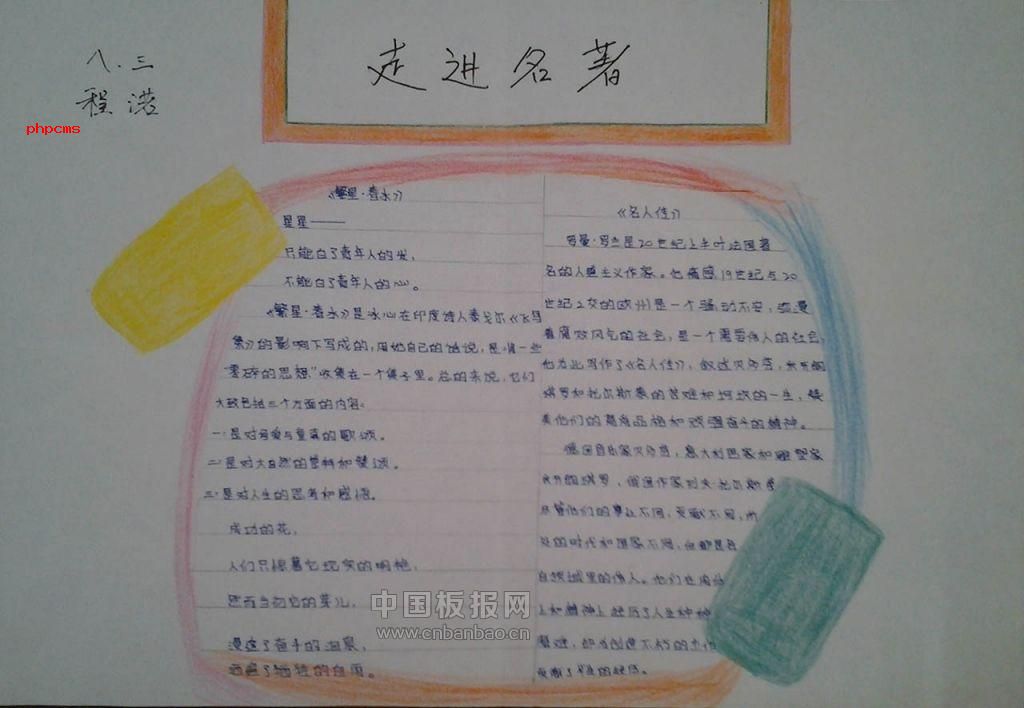 八.三
程诺
phpcms
走进名著
《繁星·春水》
星星——
只能白了青年人的发,
不能白了青年人的心。
《繁星·春水》是冰心在印度诗人泰戈尔《飞鸟
集》的影响下写成的,用她自己的话说,是将一些
"零碎的思想"收集在一个集子里。总的来说,它们
大致包括三个方面的内容:
一.是对母爱与童真的歌颂。
二.是对大自然的崇拜和赞颂。
三.是对人生的思考和感悟。
成功的花,
人们只惊羡她现实的明艳,
然而当初它的芽儿,
浸透了奋斗的泪泉,
洒遍了牺牲的血雨。
《名人传》
罗曼·罗兰是20世纪上半叶法国著
名的人道主义作家。他痛感19世纪与20
世纪之交的欧洲是一个骚动不安,弥漫
着腐败风气的社会,是一个需要伟人的社会,
他为此写作了《名人传》,叙述贝多芬,米开朗
琪罗和托尔斯泰的苦难和坎坷的一生,赞
美他们的高尚品格和顽强奋斗的精神。
德国音乐家贝多芬,意大利画家和雕塑家
米开朗琪罗,俄国作家列夫·托尔斯泰
尽管他们的事业不同,贡献不同,所
处的时代和国家不同,但都是各
自领域里的伟人。他们在肉体
上和精神上经历了人生种种
磨难,却为创造不朽的杰作
贡献了毕生的经历。
中国板报网
www.cnbanbao.cn